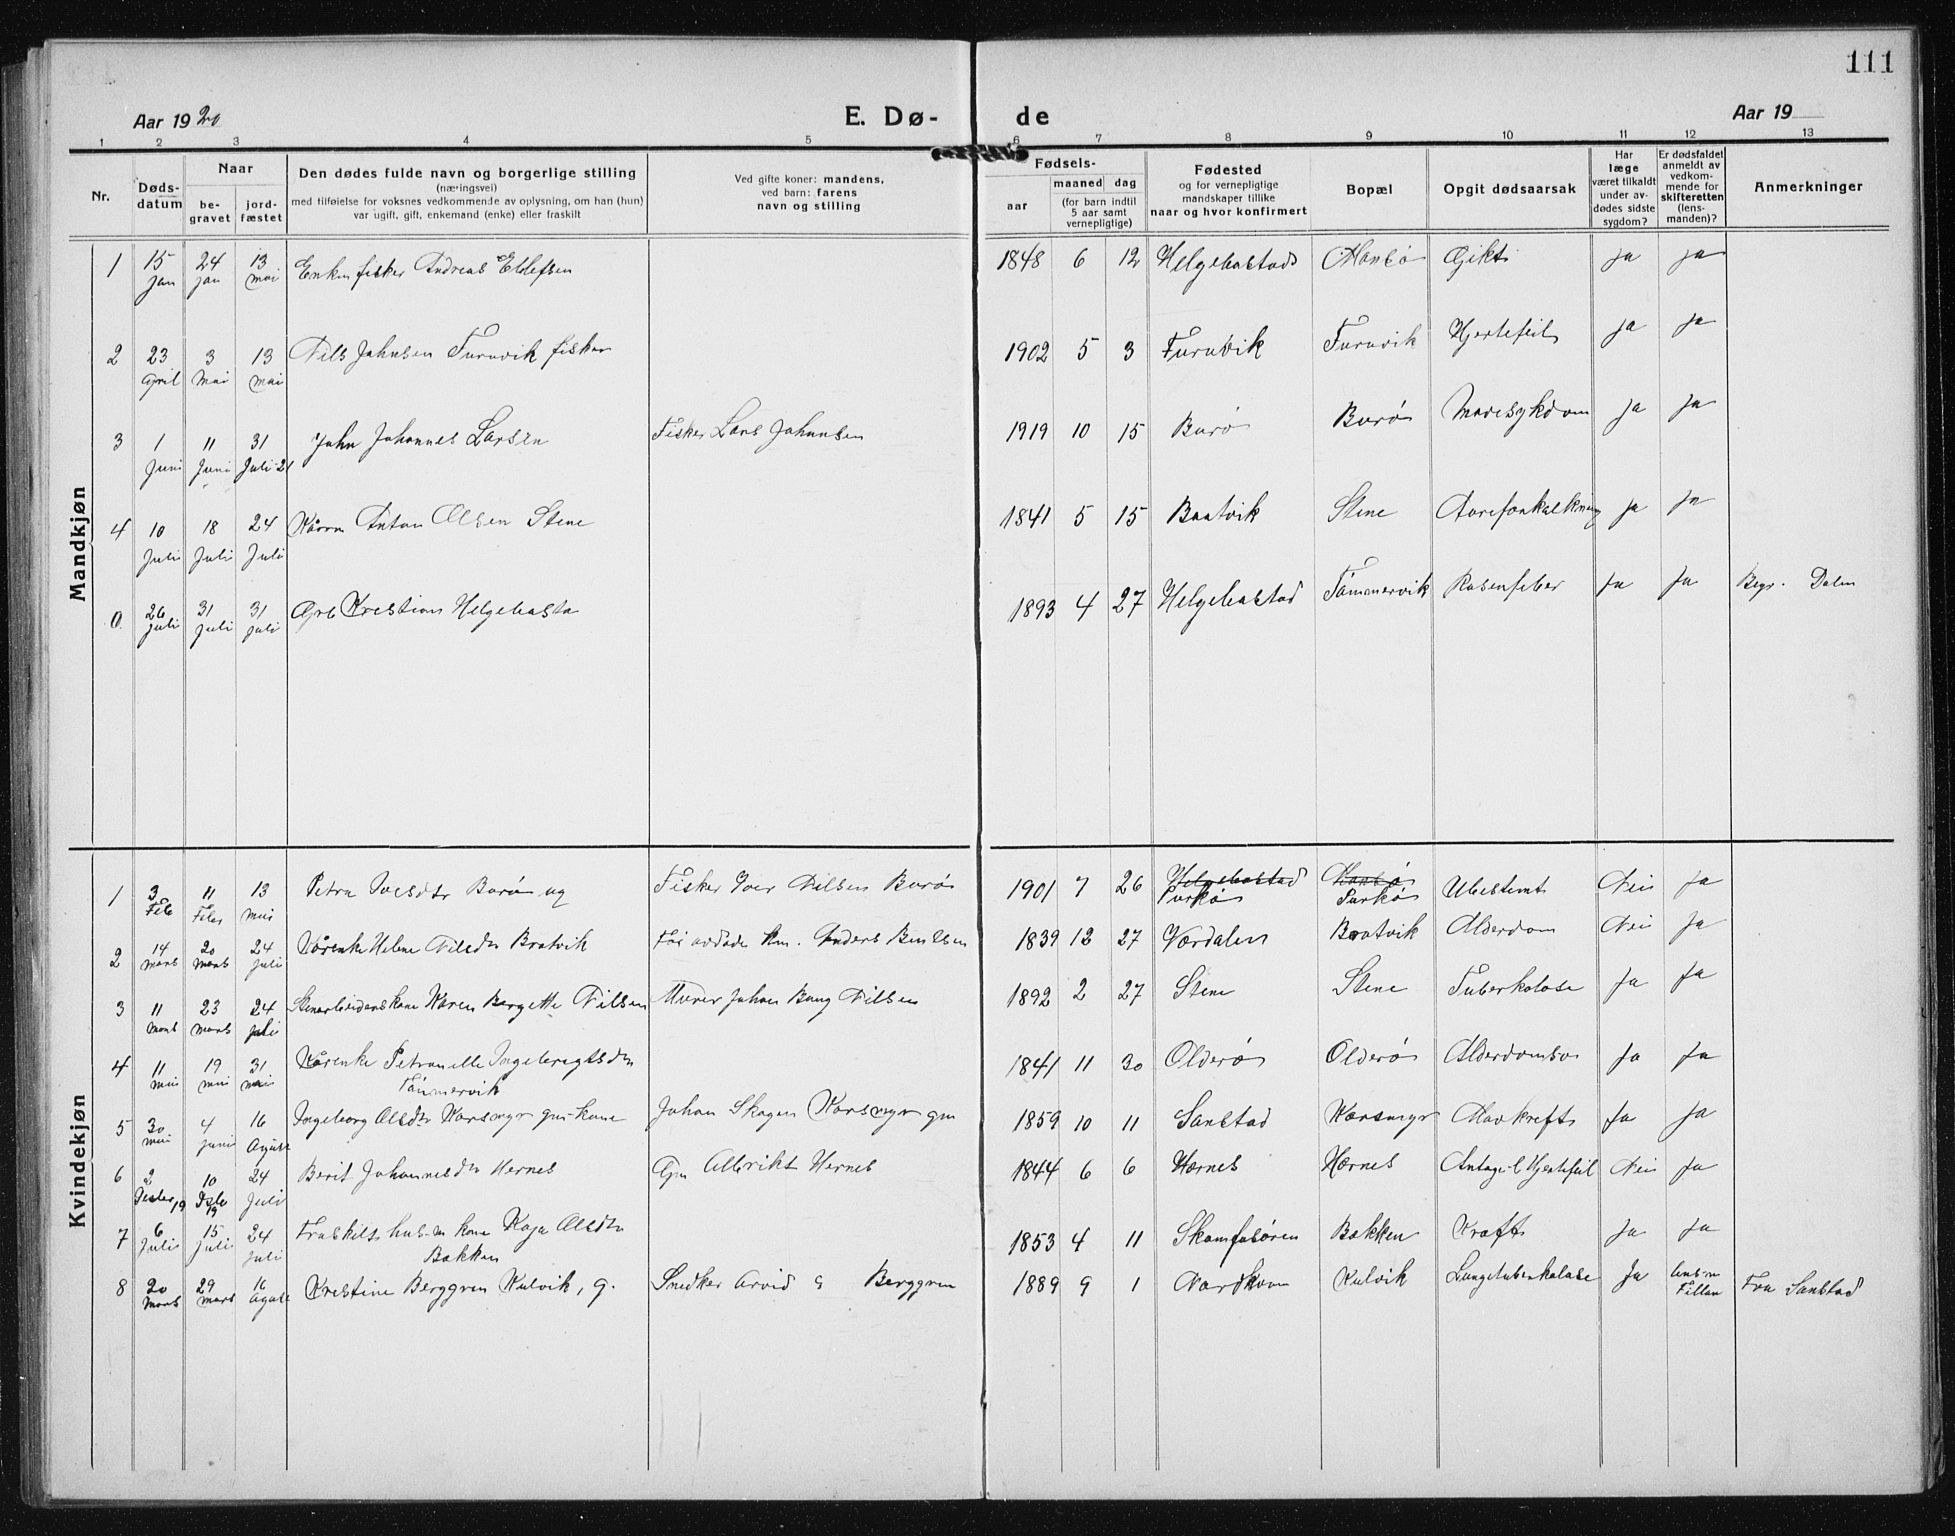 111
Aar 1920 E. Dø- de Aar 19
1 2 3 4 5 6 7 8 9 10 11 12 13
Nr. Døds-datum Naar be-gravet jord-fæstet Den dødes fulde navn og borgerlige stilling (næringsvei) med tilføielse for voksnes vedkommende av oplysning, om han (hun) var ugift, gift, enkemand (enke) eller fraskilt Ved gifte koner: mandens, ved barn: farens navn og stilling Fødsels- aar maaned dag (for barn indtil 5 aar samt vernepligtige) Fødested og for vernepligtige mandskaper tillike naar og hvor konfirmert Bopæl Opgit dødsaarsak Har læge været tilkaldt under av-dødes sidste sygdom? Er dødsfaldet anmeldt av vedkom-mende for skifteretten (lens-manden)? Anmerkninger
Mandkjøn
1 15 jan 24 jan 13 mai Enkem fisker Andreas Ellefsen 1848 6 12 Helgebostad Gikt ja ja
2 23 April 3 Mai 13 mai Nils Johnsen Furuvik fisker 1902 5 3 Furuvik Furuvik Hjertefeil ja ja
3 1 Juni 11 Juni 31 Juli 21 John Johannes Larsen Fisker Lars Johnsen 1919 10 15 Burø Burø Mavesykdom ja ja
4 10 Juli 18 Juli 24 Juli Kårm Anton Olsen Stene 1841 5 15 Bratvik Stene Aareforkalkning ja ja
0 26 juli 31 juli 31 juli Arb Kristian Helgebosta 1893 4 27 Helgebostad Tömmervik Rosenfeber Ja Ja Begr. Dolm
Kvindekjøn
1 3 Feb 11 Feb 13 mai Petra Burø ug Fisker Iver Nilsen Burø 1901 7 26 Helgebostad Purkø Purkø Ubestemt Nei Ja
2 14 mars 20 mars 24 juli Kårenke Helene Nilsdtr Bratvik Anders Bentsen 1839 12 27 Værdalen Bratvik Alderdom Nei Ja
3 11 mars 23 mars 24 juli Karen Bergette Nilsen Murer Johan Nilsen 1892 2 27 Stene Stene Tuberkolose Ja Ja
4 11 mai 19 mai 31 mai Kårenke Petronelle Ingebregtsdtr
Tömmervik 1841 11 30 Olderø Olderø Ja Ja
5 30 mai 4 juni 16 Ingeborg Olsdtr Korsmyr gm-kone Johan Skagen Korsmyr gm 1859 10 11 Sanstad Korsmyr Mavkreft Ja Ja
6 2 19 10 19 24 Juli Berit Johannesdtr Hernes Gm Albrikt Hernes 1844 6 6 Hernes Hernes Antagel Hjertefeil Nei Ja
7 6 Juli 15 juli 24 juli Fraskilt kone Kaja Olsdtr
Bakken 1853 4 11 Bakken Kræft Ja Ja
8 20 Mars 29 mars 16 Kristine Berggren Kulvik, g. Snedker Arvid Berggren 1889 9 1 Kulvik Lungetuberkolose Ja lensm Fillan Fra Sanstad